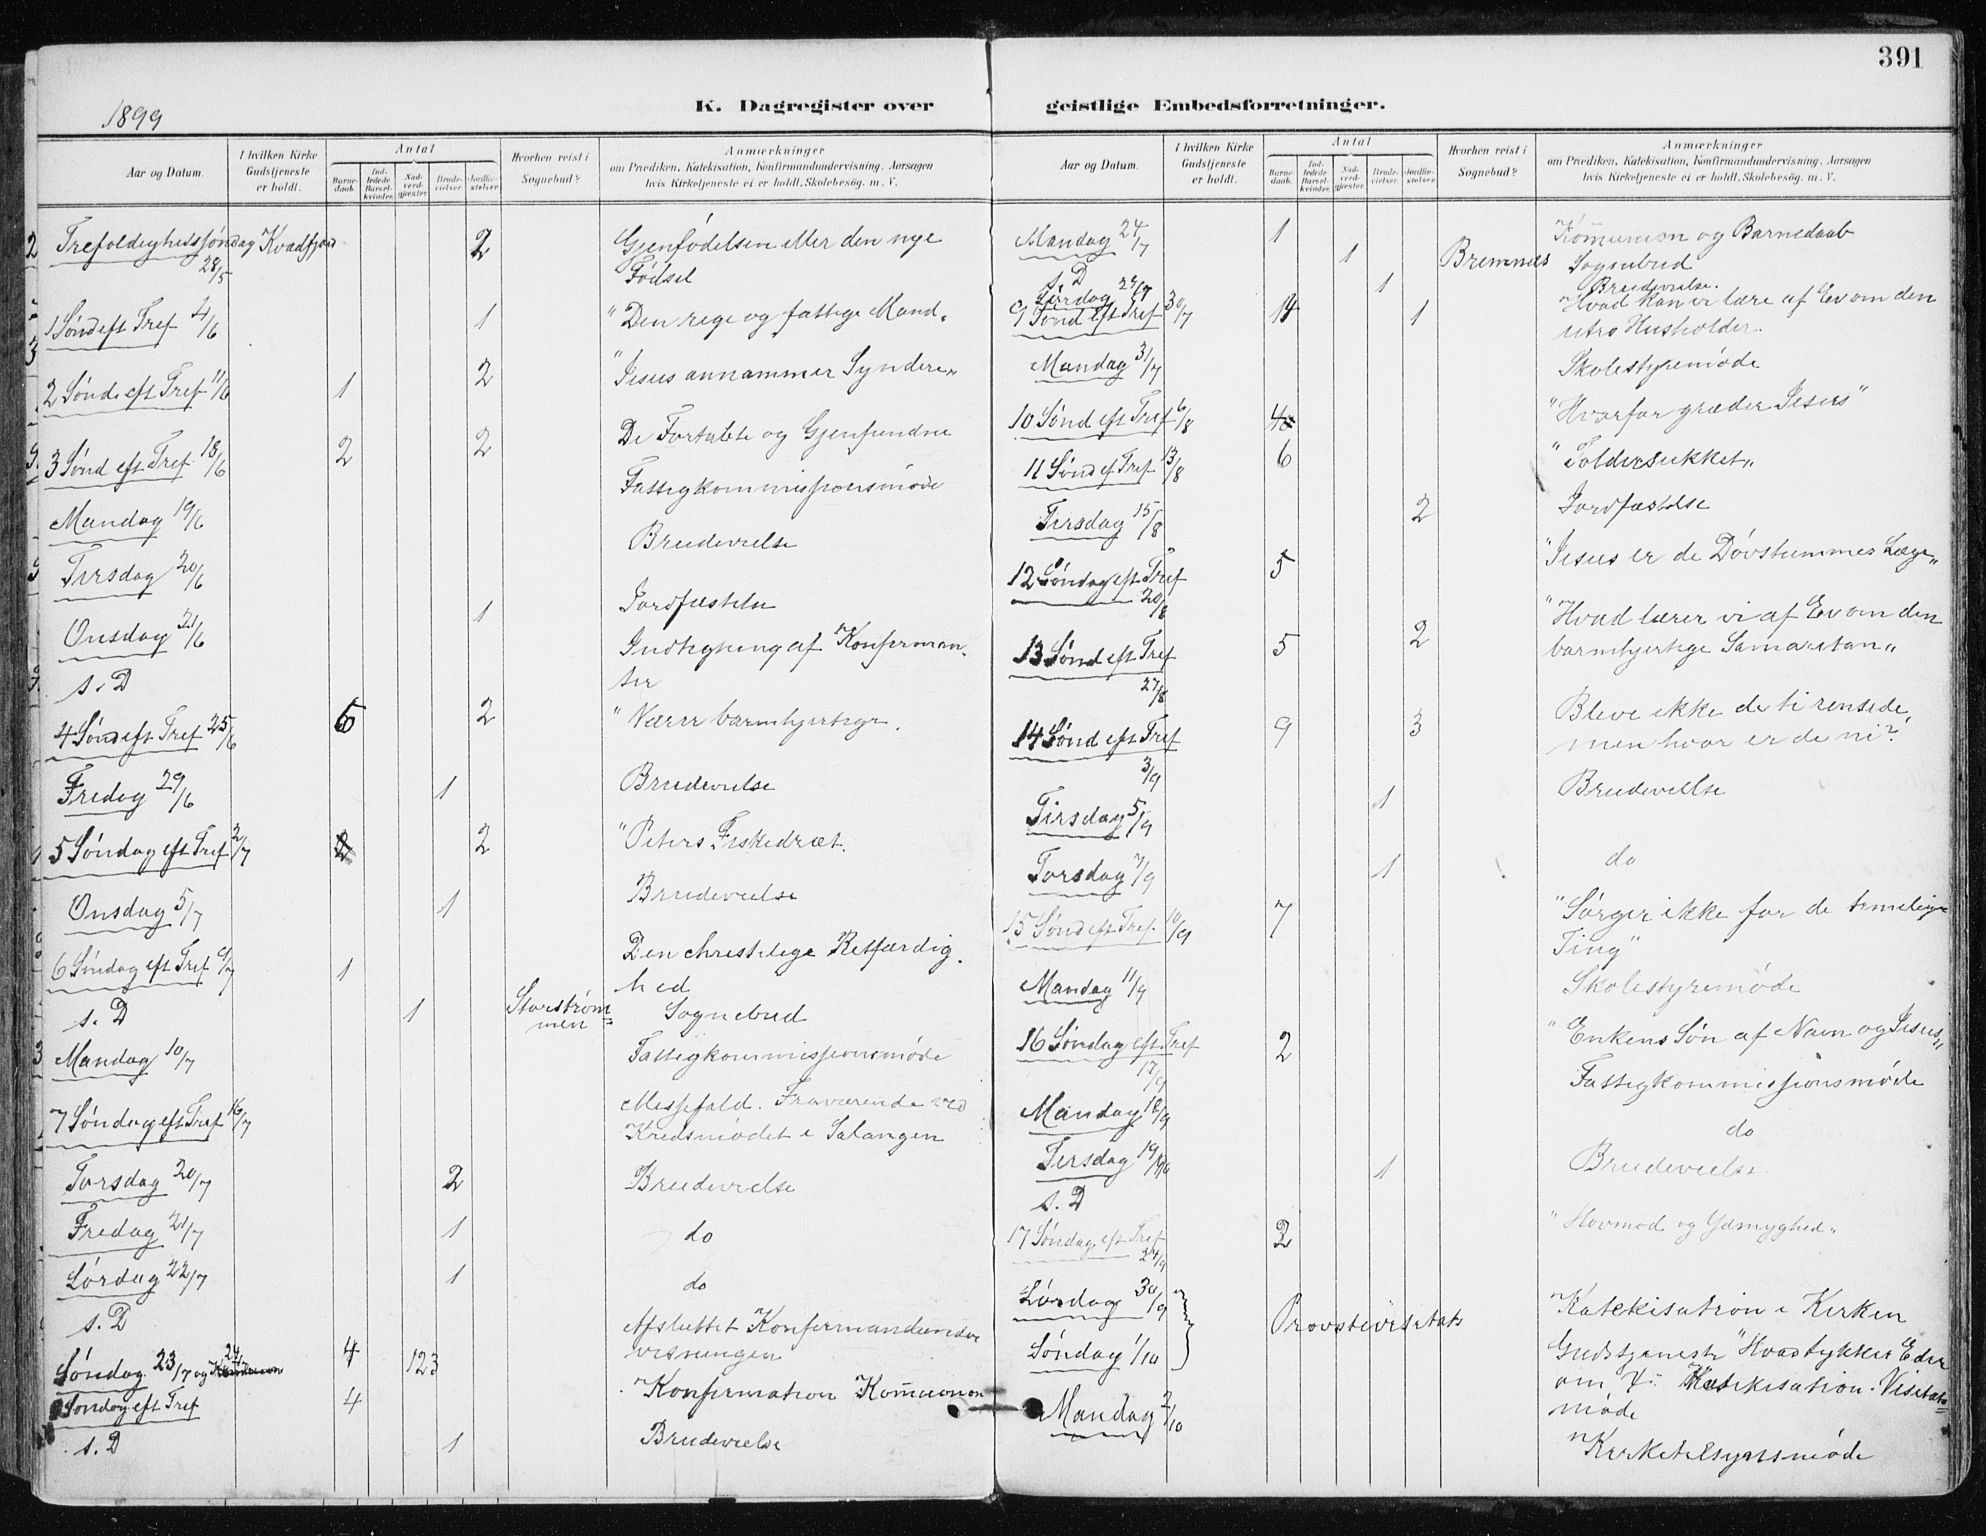 391
1899
K. Dagregister over geistlige Embedsforretninger.
Aar og Datum. I hvilken Kirke Gudstjeneste er holdt. Antal Barnedaab. Indledede Barselkvinder. Nadverdgjester. Brudevielser. Jordfæstelser. Hvorhen reist i Sognebud? Anmærkninger om Prædiken, Katekisation, Konfirmandundervisning, Aarsagen hvis Kirketjeneste ei er holdt, Skolebesøg, m. V.
Trefoldighedssøndag Kvædfjord 2 Gjenfødelsen eller den nye
28/5 Fødsel
1 Sønd eft Tref 4/6 1 "Den rige og fattige Mand"
2 Sønd. eft Tref 11/6 1 2 "Jesus annammer Syndere"
3 Sønd eft Tref 18/6 2 2 De Fortabte og Gjenfundne
Mandag 19/6 Fattigkommissionsmøde
Tirsdag 20/6 Brudevielse
Onsdag 21/6 1 Jordfæstelse
s. D Indtegning af Konfirman-
ter
4 Sønd eft Tref 25/6 6 2 "Værer barmhjertige.
Fredag 29/6 1 Brudevielse
5 Søndag eft Tref 2/7 2 "Peters Fiskedræt.
Onsdag 5/7 1 Brudevielse
6 Søndag eft Tref 9/7 1 Den christelige Retfærdig-
hed
s. D 1 Storstrøm
men Sognebud
Mandag 10/7 Fattigkommissionsmøde
7 Søndag eft Tref 16/7 Messefald. Fraværende ved
Kredsmødet i Salangen
Torsdag 20/7 2 Brudevielse
Fredag 21/7 1 do
Lørdag 22/7 1 do
s. D Afsluttet Konfirmandunder
visningen
Søndag 23/7 og 24 4 123
Søndag eft Tref 4 Konfirmation Kommunion
s. D 1 Brudevielse
Aar og Datum. I hvilken Kirke Gudstjeneste er holdt. Antal Barnedaab. Indledede Barselkvinder. Nadverdgjester. Brudevielser. Jordfæstelser. Hvorhen reist i Sognebud? Anmærkninger om Prædiken, Katekisation, Konfirmandundervisning, Aarsagen hvis Kirketjeneste ei er holdt, Skolebesøg, m. V.
Mandag 24/7 1 Kommunion og Barnedaab
s. D 1 Bremnes Sognebud
1 Brudevielse.
9 Sønd eft Tref 30/7 1 "Hvad kan vi lære af Ev om den
utro Husholder.
Mandag 31/7 Skolestyremøde
10 Sønd eft Tref 6/8 4 "Hvorfor græder Jesus"
11 Sønd ef Tref 13/8 6 "Toldersukket"
Tirsdag 15/8 2 Jordfæstelse
12 Søndag eft Tref 5 "Jesus er de Døvstummes Læge"
20/8
13 Sønd eft Tref 5 2 "Hvad lærer vi af Ev om den
27/8 barmhjertige Samaritan"
14 Sønd eft Tref 9 3 Bleve ikke de ti rensede,
3/9 men hvor er de ni?
Tirsdag 5/9 1 Brudevielse
Torsdag 7/9 1 do
15 Sønd eft Tref. 10/9 7 "Sørger ikke for de timelige
Ting"
Mandag 11/9 Skolestyremøde
16 Søndag eft Tref 2 "Enkens Søn af Nain og Jesus"
17/9
Mandag 18/9 Fattigkommissionsmøde
Tirsdag 19/9 do
s. D 1 Brudevielse
17 Søndag eft Tref 2 "Hovmod og Ydmyghed"
24/9
Lørdag 30/9 Provstevisitats Katekisation i Kirken
Søndag 1/10 Gudstjeneste "Hvad tykkes Eder
om X" Katekisation. Visitats
møde
Mandag 2/10 Kirketilsynsmøde